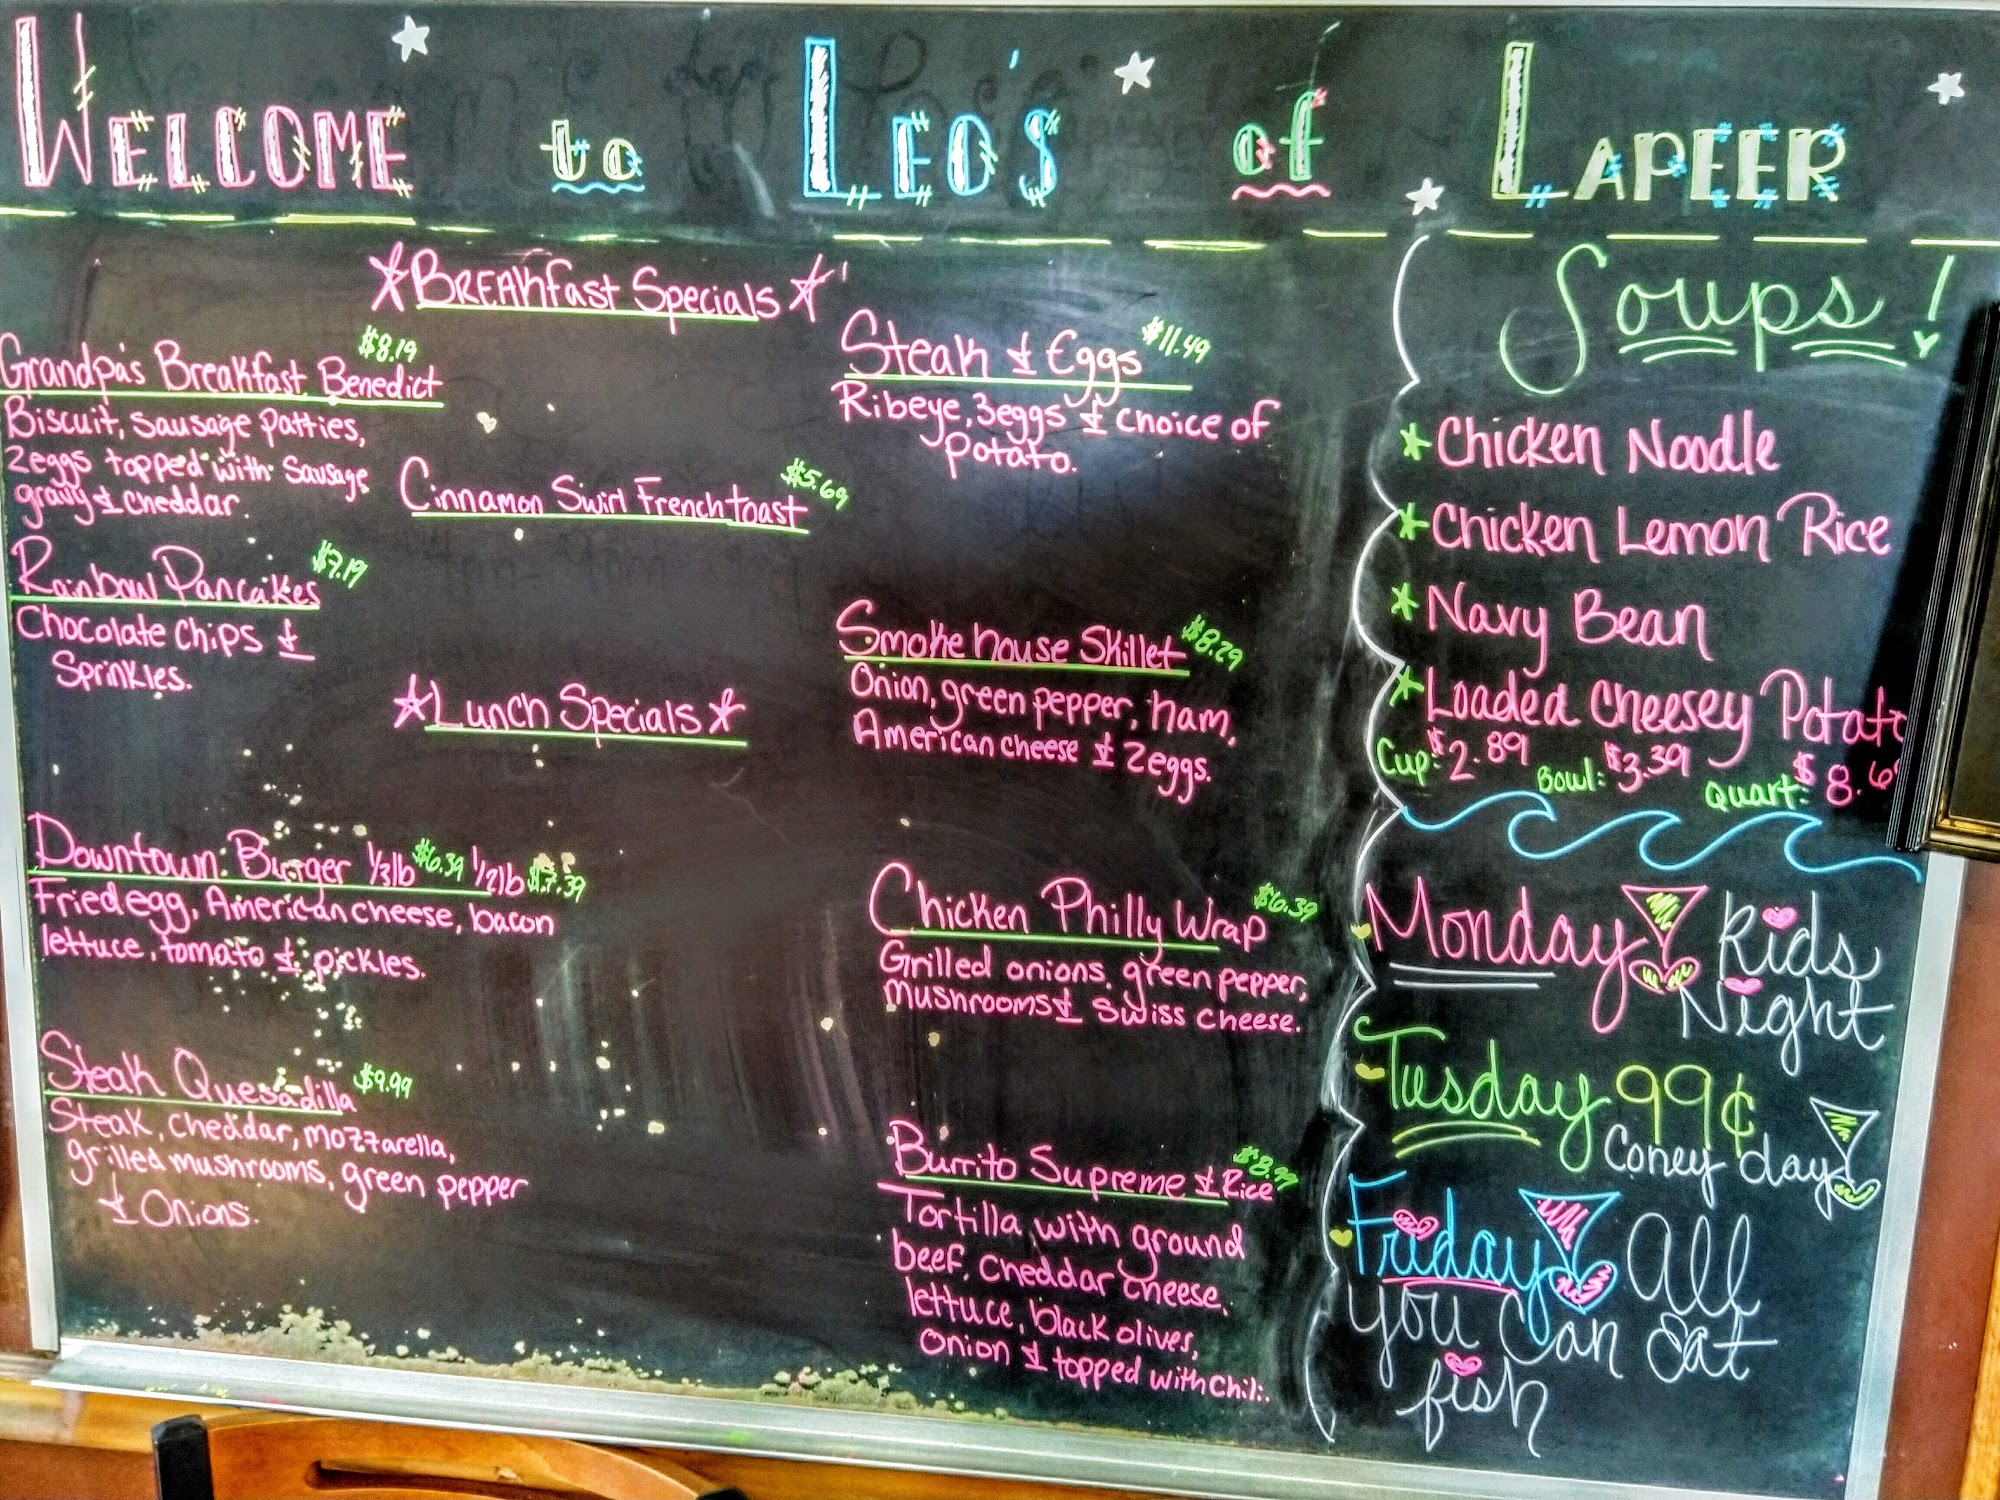 Welcome to Leo's of Lapeer
☆Breakfast Specials☆
$8.19
Grandpa's Breakfast Benedict
Biscuit, sausage patties,
2eggs topped with sausage
gravy & cheddar
Cinnamon Swirl French toast $5.69
Rainbow Pancakes $7.19
Chocolate chips &
Sprinkles.
Steak & Eggs $11.49
Ribeye, 3eggs & choice of
potato.
Smoke house Skillet $8.29
Onion, green pepper, ham,
American cheese & 2eggs.
☆Lunch Specials☆
Downtown Burger 1/3lb $6.39 1/2lb $7.39
Fried egg, American cheese, bacon
lettuce, tomato & pickles.
Steak Quesadilla $9.99
Steak, cheddar, mozzarella,
grilled mushrooms, green pepper
& Onions.
Chicken Philly Wrap $6.39
Grilled onions, green pepper,
mushrooms & swiss cheese.
Burrito Supreme & Rice $8.99
Tortilla with ground
beef, cheddar cheese,
lettuce, black olives,
onion & topped with chili.
Soups!
Chicken Noodle
Chicken Lemon Rice
Navy Bean
Loaded Cheesey Potato
Cup: $2.89 Bowl: $3.39 Quart: $8.6
Monday Kids
Night
Tusday 99¢
Coney day
Friday All
you Can Eat
fish